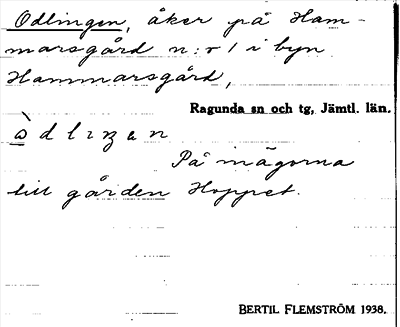 Odlingen, åker på Ham-
marsgård n:r 1 i byn
Hammarsgård,
Ragunda sn och tg, Jämtl. län.
På mägorna
till gården Hoppet.
BERTIL FLEMSTRÖM 1938.